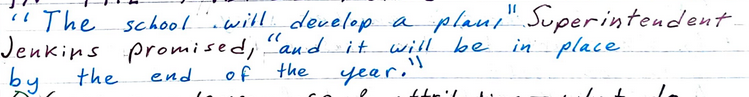 " The school will develop a plan," Superintendent
Jenkins promised, "and it will be in place
by the end of the year."